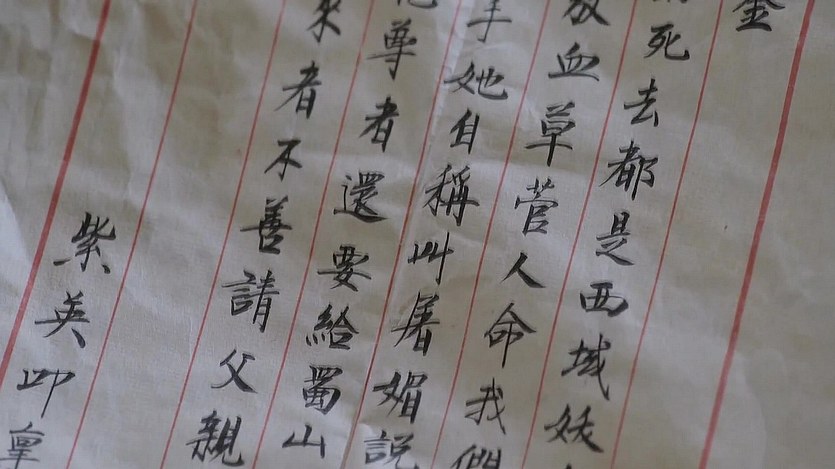 金
死去都是西域妖
放血草菅人命我們
手她自稱叫屠媚説
尊者還要給蜀山
來者不善請父親
紫英叩稟